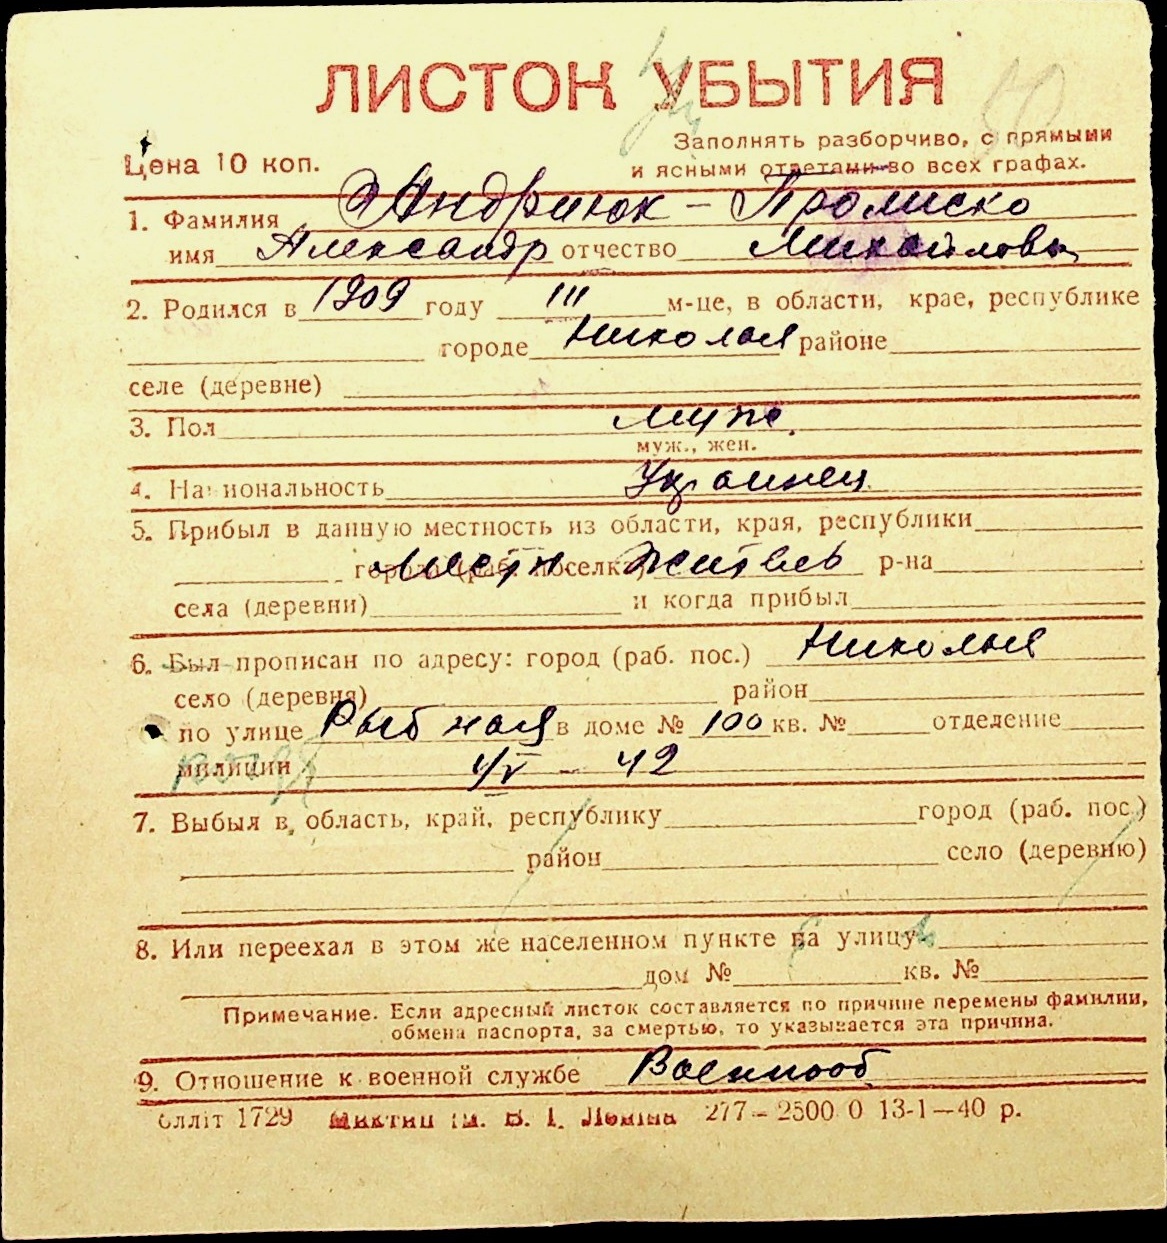 ЛИСТОК УБЫТИЯ
50
Цена 10 коп.
Заполнять разборчиво, с прямыми
и ясными ответами во всех графах.
1. Фамилия Андриюк - Промиско
имя Александр отчество Михайлович
2. Родился в 1909 году III м-це, в области, крае, республике
городе Николаев районе
селе (деревне)
3. Пол муж.
муж., жен.
4. Национальность Украинец
5. Прибыл в данную местность из области, края, республики
города (раб. поселка) местн житель р-на
села (деревни) и когда прибыл
6. Был прописан по адресу: город (раб. пос.) Николаев
село (деревня) район
по улице Рыбная в доме № 100 кв. № отделение
милиции 4/V - 42
7. Выбыл в область, край, республику город (раб. пос.)
район село (деревню)
8. Или переехал в этом же населенном пункте на улицу
дом № кв. №
Примечание. Если адресный листок составляется по причине перемены фамилии,
обмена паспорта, за смертью, то указывается эта причина.
9. Отношение к военной службе Военнооб
Олліт 1729 277-2500 0 13-1-40 р.